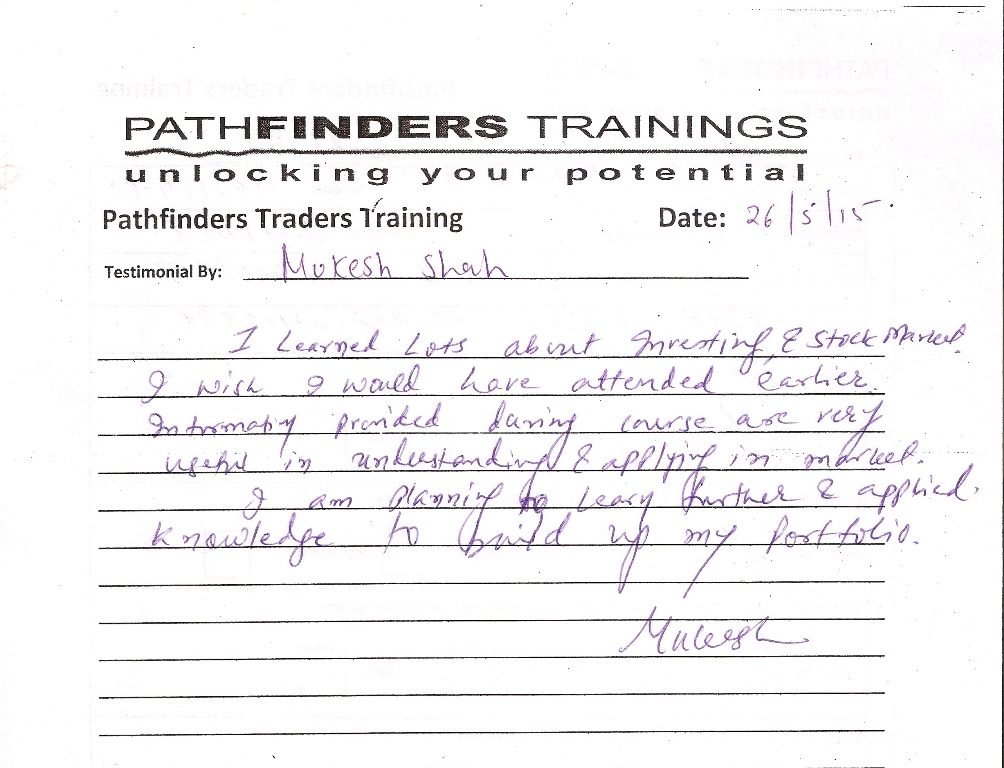 PATHFINDERS TRAININGS
unlocking your potential
Pathfinders Traders Training Date: 26/5/15
Testimonial By: Mukesh Shah
I Learned Lots about Investing & Stock Market.
I wish I would have attended earlier.
Information provided during course are very
useful in understanding & applying in market.
I am planning to learn further & applied
knowledge to build up my portfolio.
Mukesh